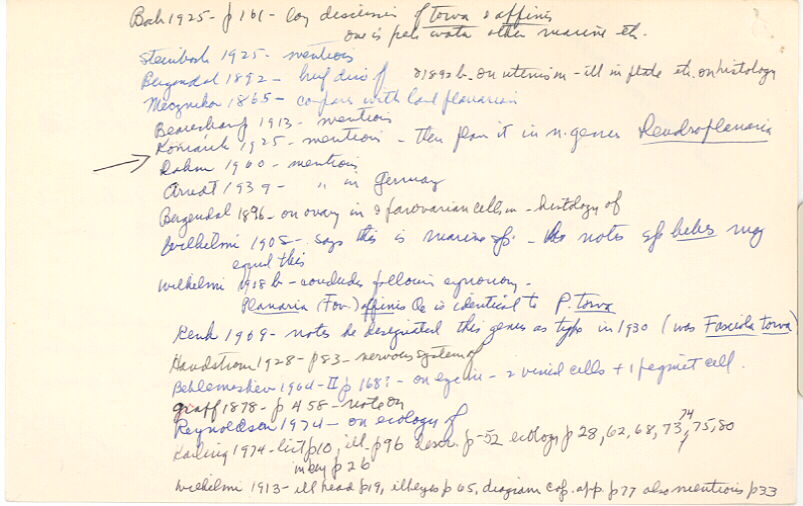 Bock 1925 - p 161 - long discussion of torva & affinis
one is fresh water other marine etc.
Steinbock 1925 - mentions
Bergendal 1892 - brief disc of &1892b. on uterus in - ill in plate etc. on histology
Mecznikow 1865 - compares with land planarian
Beauchamp 1913 - mentions
Komárek 1925 - mentions - then places it in n. genus Dendroplanaria
Dahm 1960 - mentions
Arndt 1939 - " in Germany
Bergendal 1896 - on ovary in & parovarian cells in - histology of
Wilhelmi 1908 - says this is marine sp. - notes sp hebes may
equal this
Wilhelmi 1908 b - concludes following synonomy.
Planaria (Fov.) affinis Oe is identical to P. torva
Kenk 1969 - notes he designated this genus as type in 1930 (was Fasciola torva)
Handstrom 1928 - p 83 - nervous system of
Beklemeshev 1964 - II p 168: - on eye in - 2 visual cells + 1 pigment cell.
Graff 1878 - p 458 - note on
Reynoldson 1974 - on ecology of
Karling 1974 - list p10, ill. p 96 descr. p - 52 ecology p 28, 62, 68, 73, 74, 75, 80
in key p 26
Wilhelmi 1913 - ill head p19, ill eyes p 65, diagram cop. app. p 77 also mentions p 33